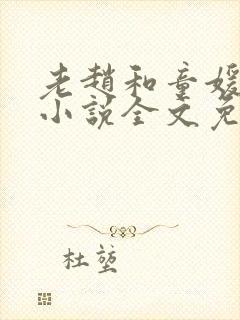 老趙和童媛
小說全文免
杜堃